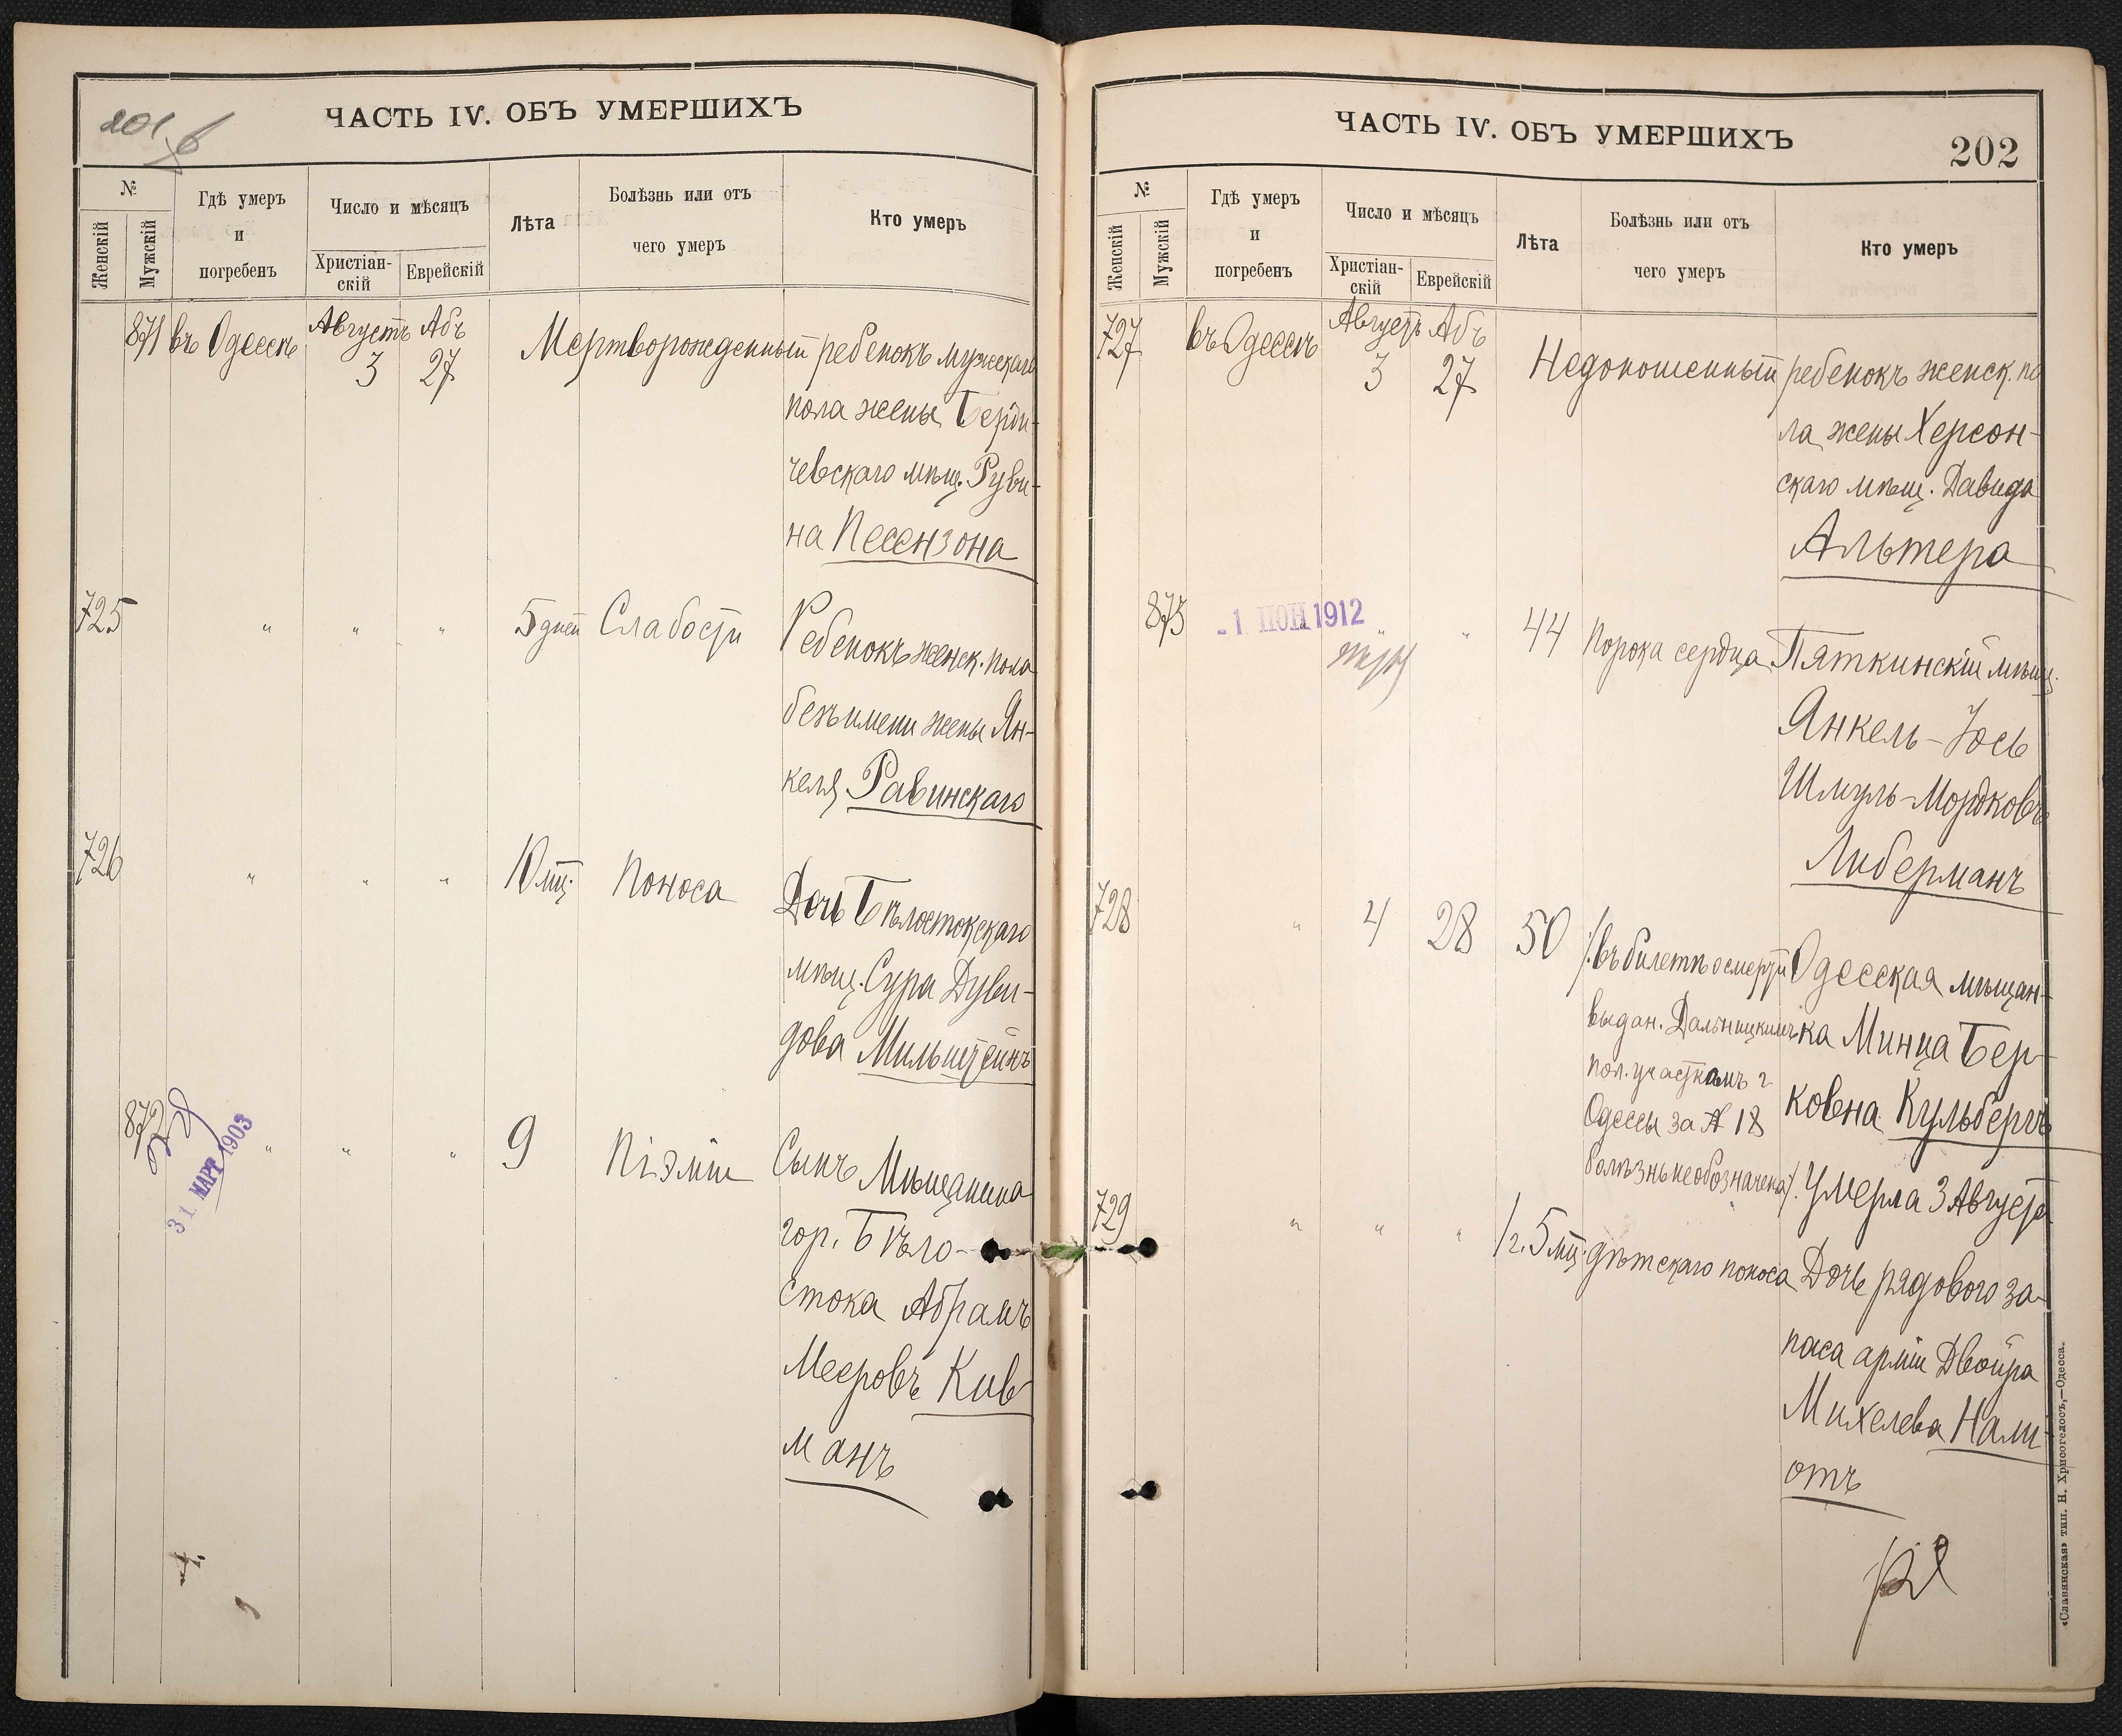 201
ЧАСТЬ IV. ОБЪ УМЕРШИХЪ
№
Женскій
Мужскій
Гдѣ умеръ
и
погребенъ
Число и мѣсяцъ
Христіан-
скій
Еврейскій
Лѣта
Болѣзнь или отъ
чего умеръ
Кто умеръ
871 въ Одессѣ Августъ Абъ
3 27
Мертворожденный ребенокъ мужскаго
пола жены Берди-
чевскаго мѣщ. Руви-
на Песензона
725 " " " 5 дней Слабости Ребенокъ женск. пола
безъ имени жены Ян-
келя Равинскаго
726 " " " 10 мц. Поноса Дочь Бѣлостокскаго
мѣщ. Сура Дуви-
дова Мильштейнъ
872 " " " 9 Піэміи Сынъ Мѣщанина
31 МАРТ 1903
гор. Бѣло-
стока Абрамъ
Мееровъ Кив
манъ
ЧАСТЬ IV. ОБЪ УМЕРШИХЪ
202
№
Женскій
Мужскій
Гдѣ умеръ
и
погребенъ
Число и мѣсяцъ
Христіан-
скій
Еврейскій
Лѣта
Болѣзнь или отъ
чего умеръ
Кто умеръ
727 въ Одессѣ Августъ Абъ
3 27
Недоношенный ребенокъ женск. по
ла жены Херсон-
скаго мѣщ. Давида
Альтера
873 - 1 ІЮН 1912 " " 44 Порока сердца Пяткинскій мѣщ.
Янкель-Іось
Шмуль-Мордковъ
Либерманъ
728 " 4 28 50 /въ билетѣ о смерти Одесская мѣщан-
выдан. Дальницкимъ ка Минца Бер-
пол. участкомъ г.
Одессы за № 18 ковна Кульбергъ
болѣзнь не обозначена/. Умерла 3 Августа
729 " " " 1 г. 5 мц. дѣтскаго поноса Дочь рядового за-
паса арміи Двойра
Михелева Нали-
отъ
«Славянская» тип. Н. Хрисогелосъ,—Одесса.